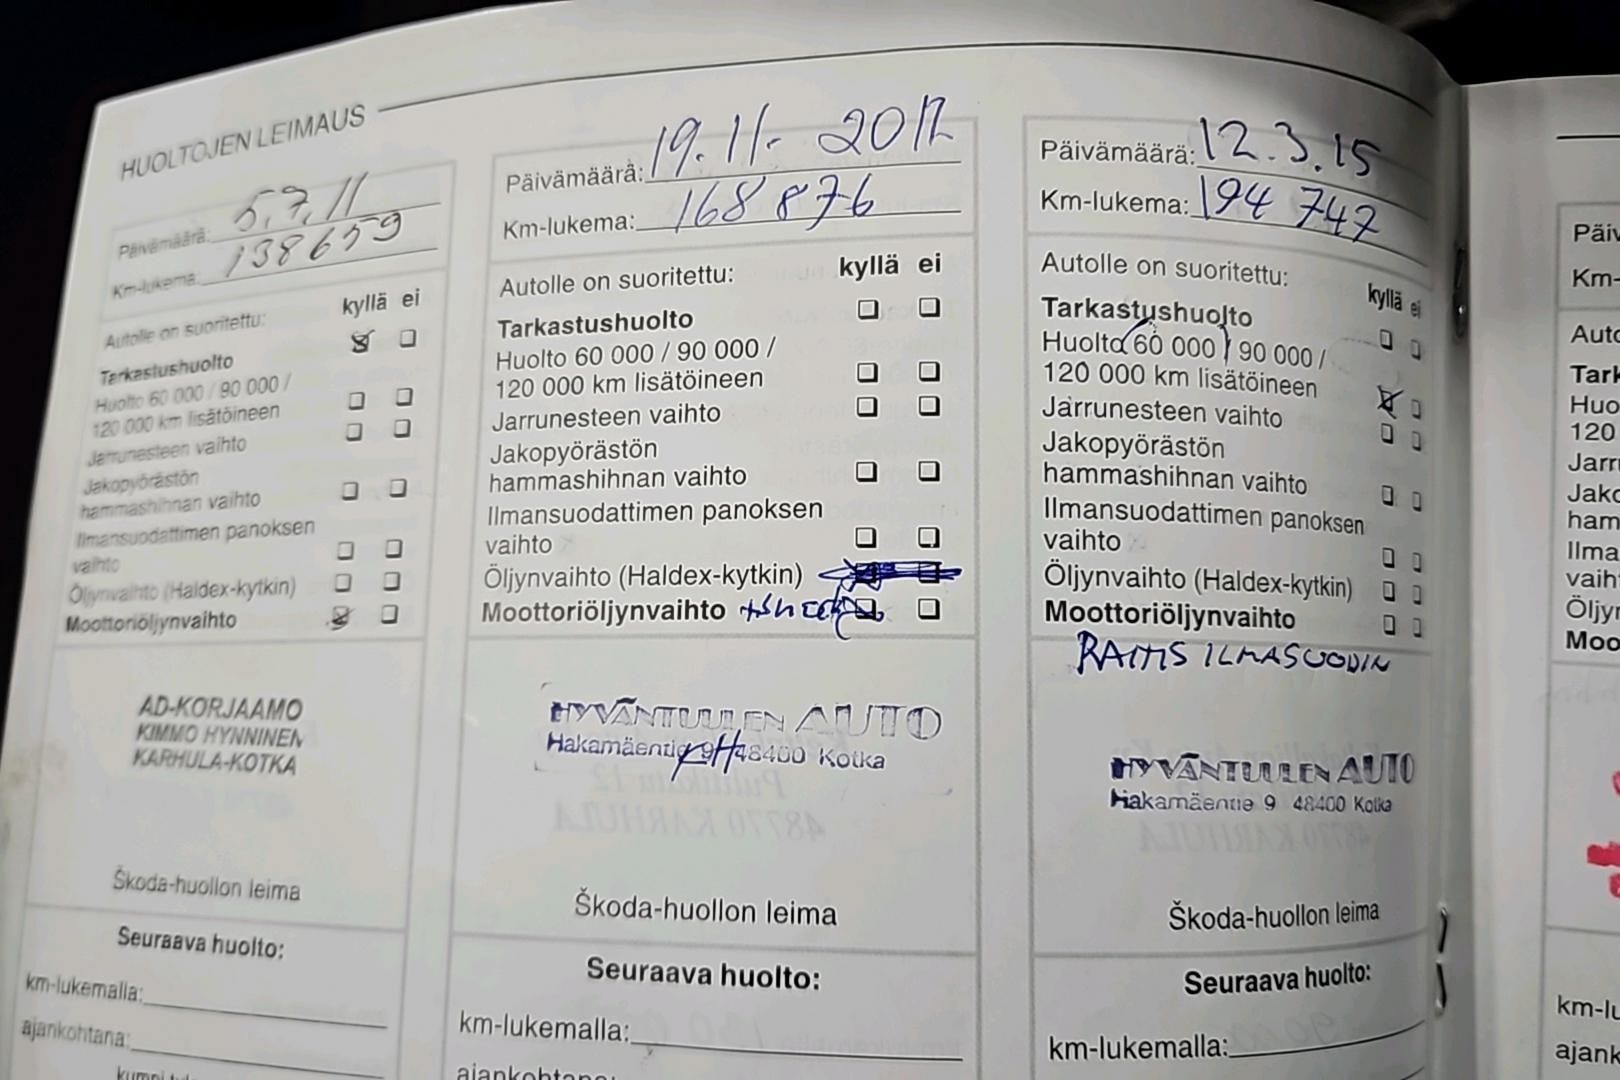 HUOLTOJEN LEIMAUS
Päivämäärä: 5.7.11
Km-lukema: 138659
Autolle on suoritettu:
kyllä ei
Tarkastushuolto
Huolto 60 000 / 90 000 /
120 000 km lisätöineen
Jarrunesteen vaihto
Jakopyörästön
hammashihnan vaihto
Ilmansuodattimen panoksen
vaihto
Öljynvaihto (Haldex-kytkin)
Moottoriöljynvaihto
AD-KORJAAMO
KIMMO HYNNINEN
KARHULA-KOTKA
Škoda-huollon leima
Seuraava huolto:
km-lukemalla:
ajankohtana:
Päivämäärä: 19.11.2012
Km-lukema: 168 876
Autolle on suoritettu:
kyllä ei
Tarkastushuolto
Huolto 60 000 / 90 000 /
120 000 km lisätöineen
Jarrunesteen vaihto
Jakopyörästön
hammashihnan vaihto
Ilmansuodattimen panoksen
vaihto
Öljynvaihto (Haldex-kytkin)
Moottoriöljynvaihto
HYVÄNTUULEN AUTO
Hakamäentie 9 48400 Kotka
Škoda-huollon leima
Seuraava huolto:
km-lukemalla:
ajankohtana:
Päivämäärä: 12.3.15
Km-lukema: 194 747
Autolle on suoritettu:
kyllä ei
Tarkastushuolto
Huolto 60 000 / 90 000 /
120 000 km lisätöineen
Jarrunesteen vaihto
Jakopyörästön
hammashihnan vaihto
Ilmansuodattimen panoksen
vaihto
Öljynvaihto (Haldex-kytkin)
Moottoriöljynvaihto
RAITIS ILMASUODIN
HYVÄNTUULEN AUTO
Hakamäentie 9 48400 Kotka
Škoda-huollon leima
Seuraava huolto:
km-lukemalla: